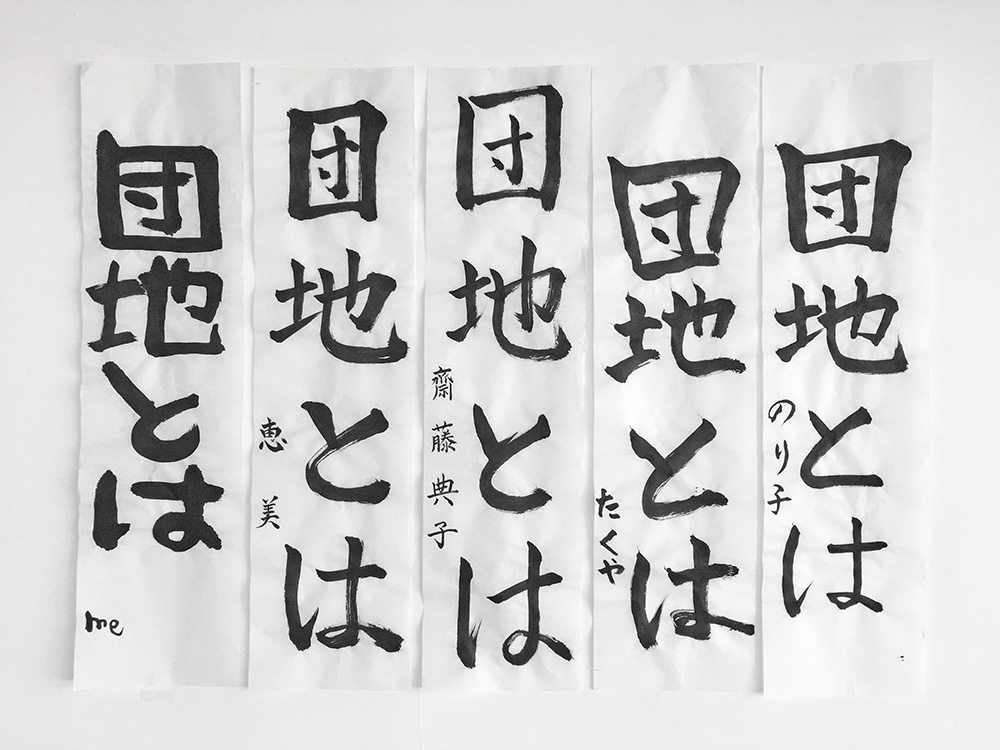 団地とは
のり子
団地とは
たくや
団地とは
齋藤典子
団地とは
恵美
団地とは
me